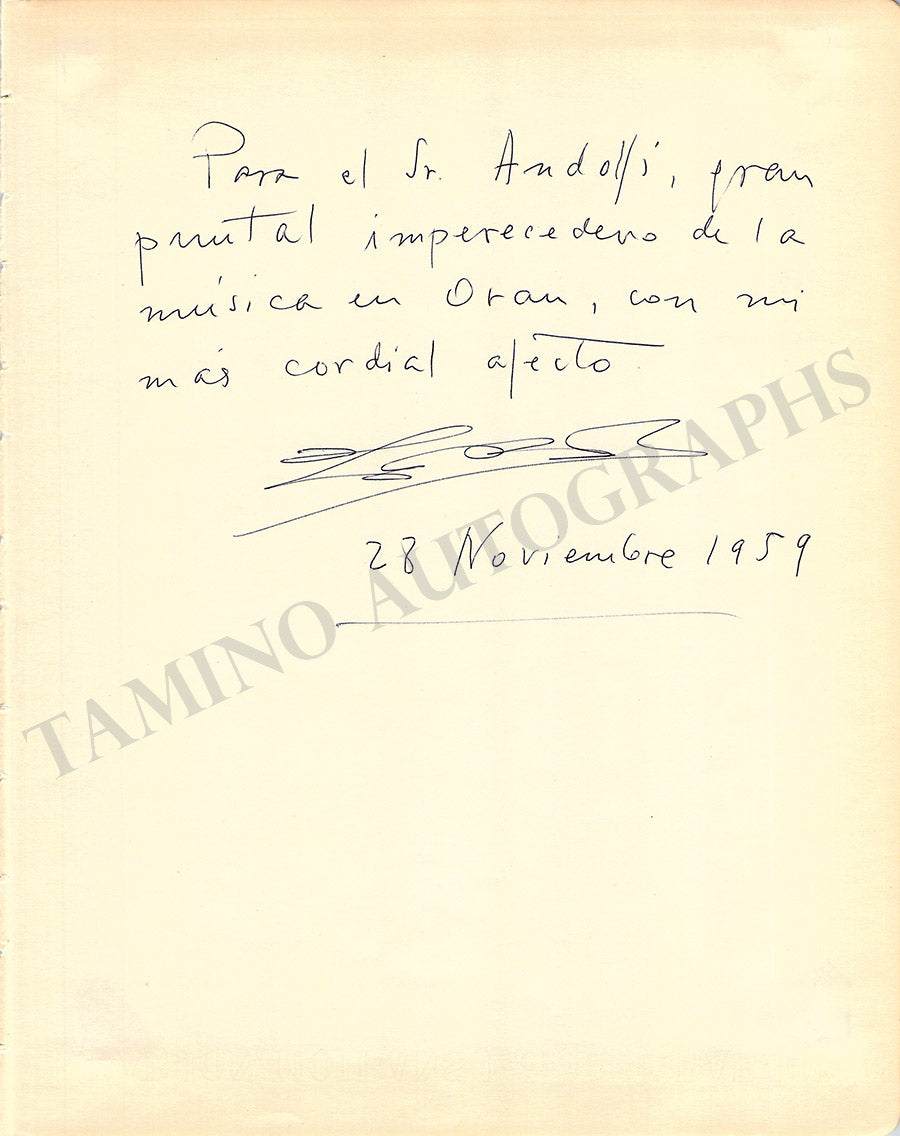 Para el Sr. Andolfi, gran
puntal imperecedero de la
música en Oran, con mi
más cordial afecto.
28 Noviembre 1959
TAMINO AUTOGRAPHS